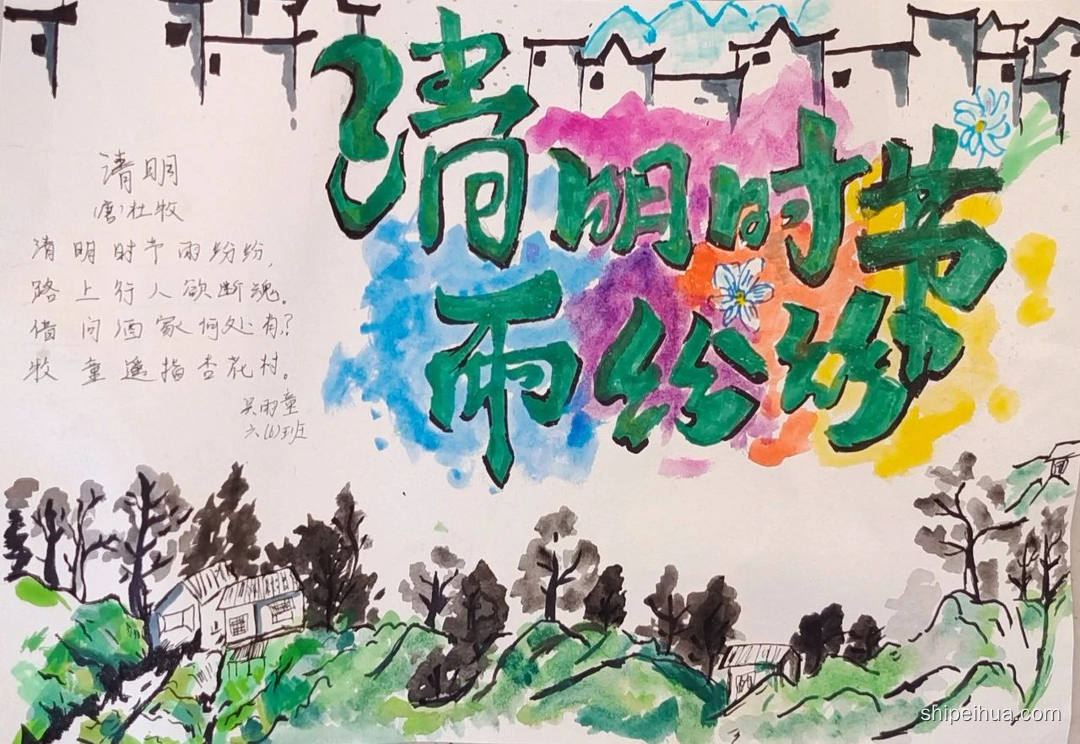 清明时节
雨纷纷
清明
(唐)杜牧
清明时节雨纷纷,
路上行人欲断魂。
借问酒家何处有?
牧童遥指杏花村。
吴雨童
六(6)班
shipeihua.com